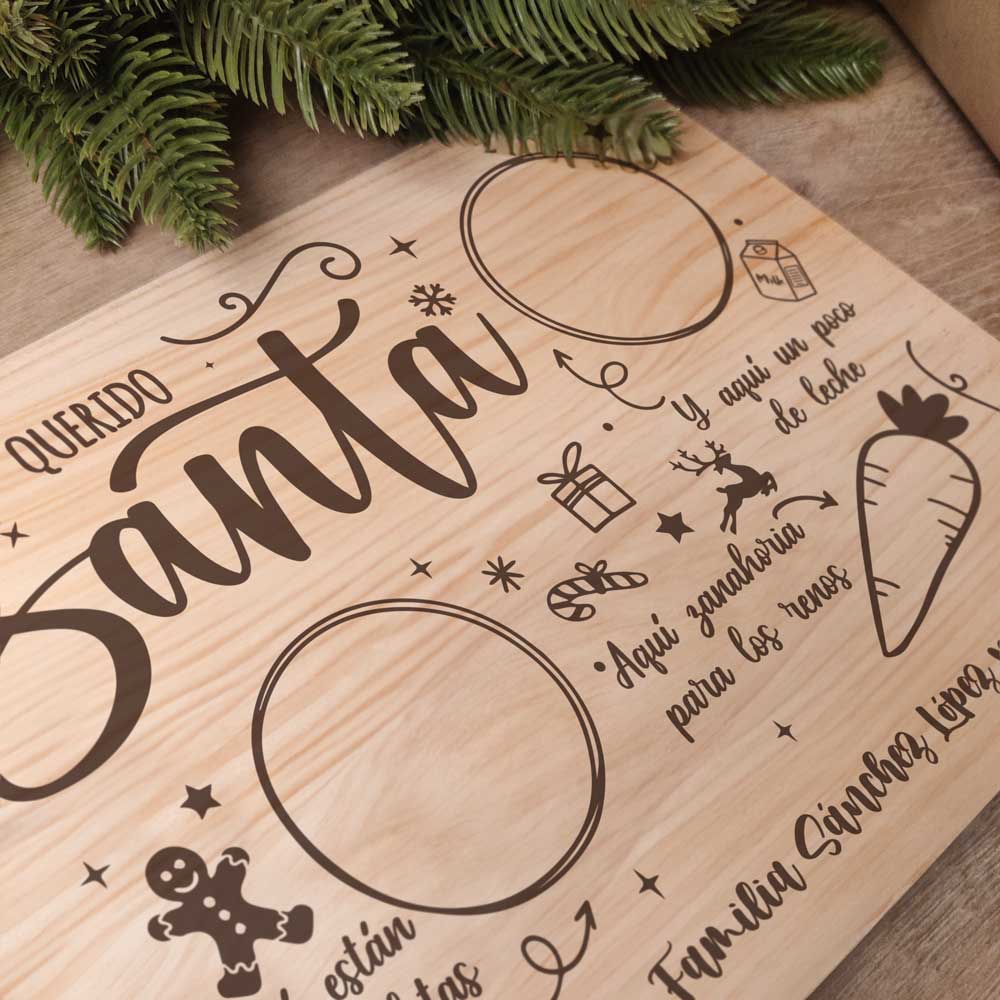 QUERIDO
Santa
Milk
Y aquí un poco
de leche
Aquí zanahoria
para los renos
están
Familia Sánchez López